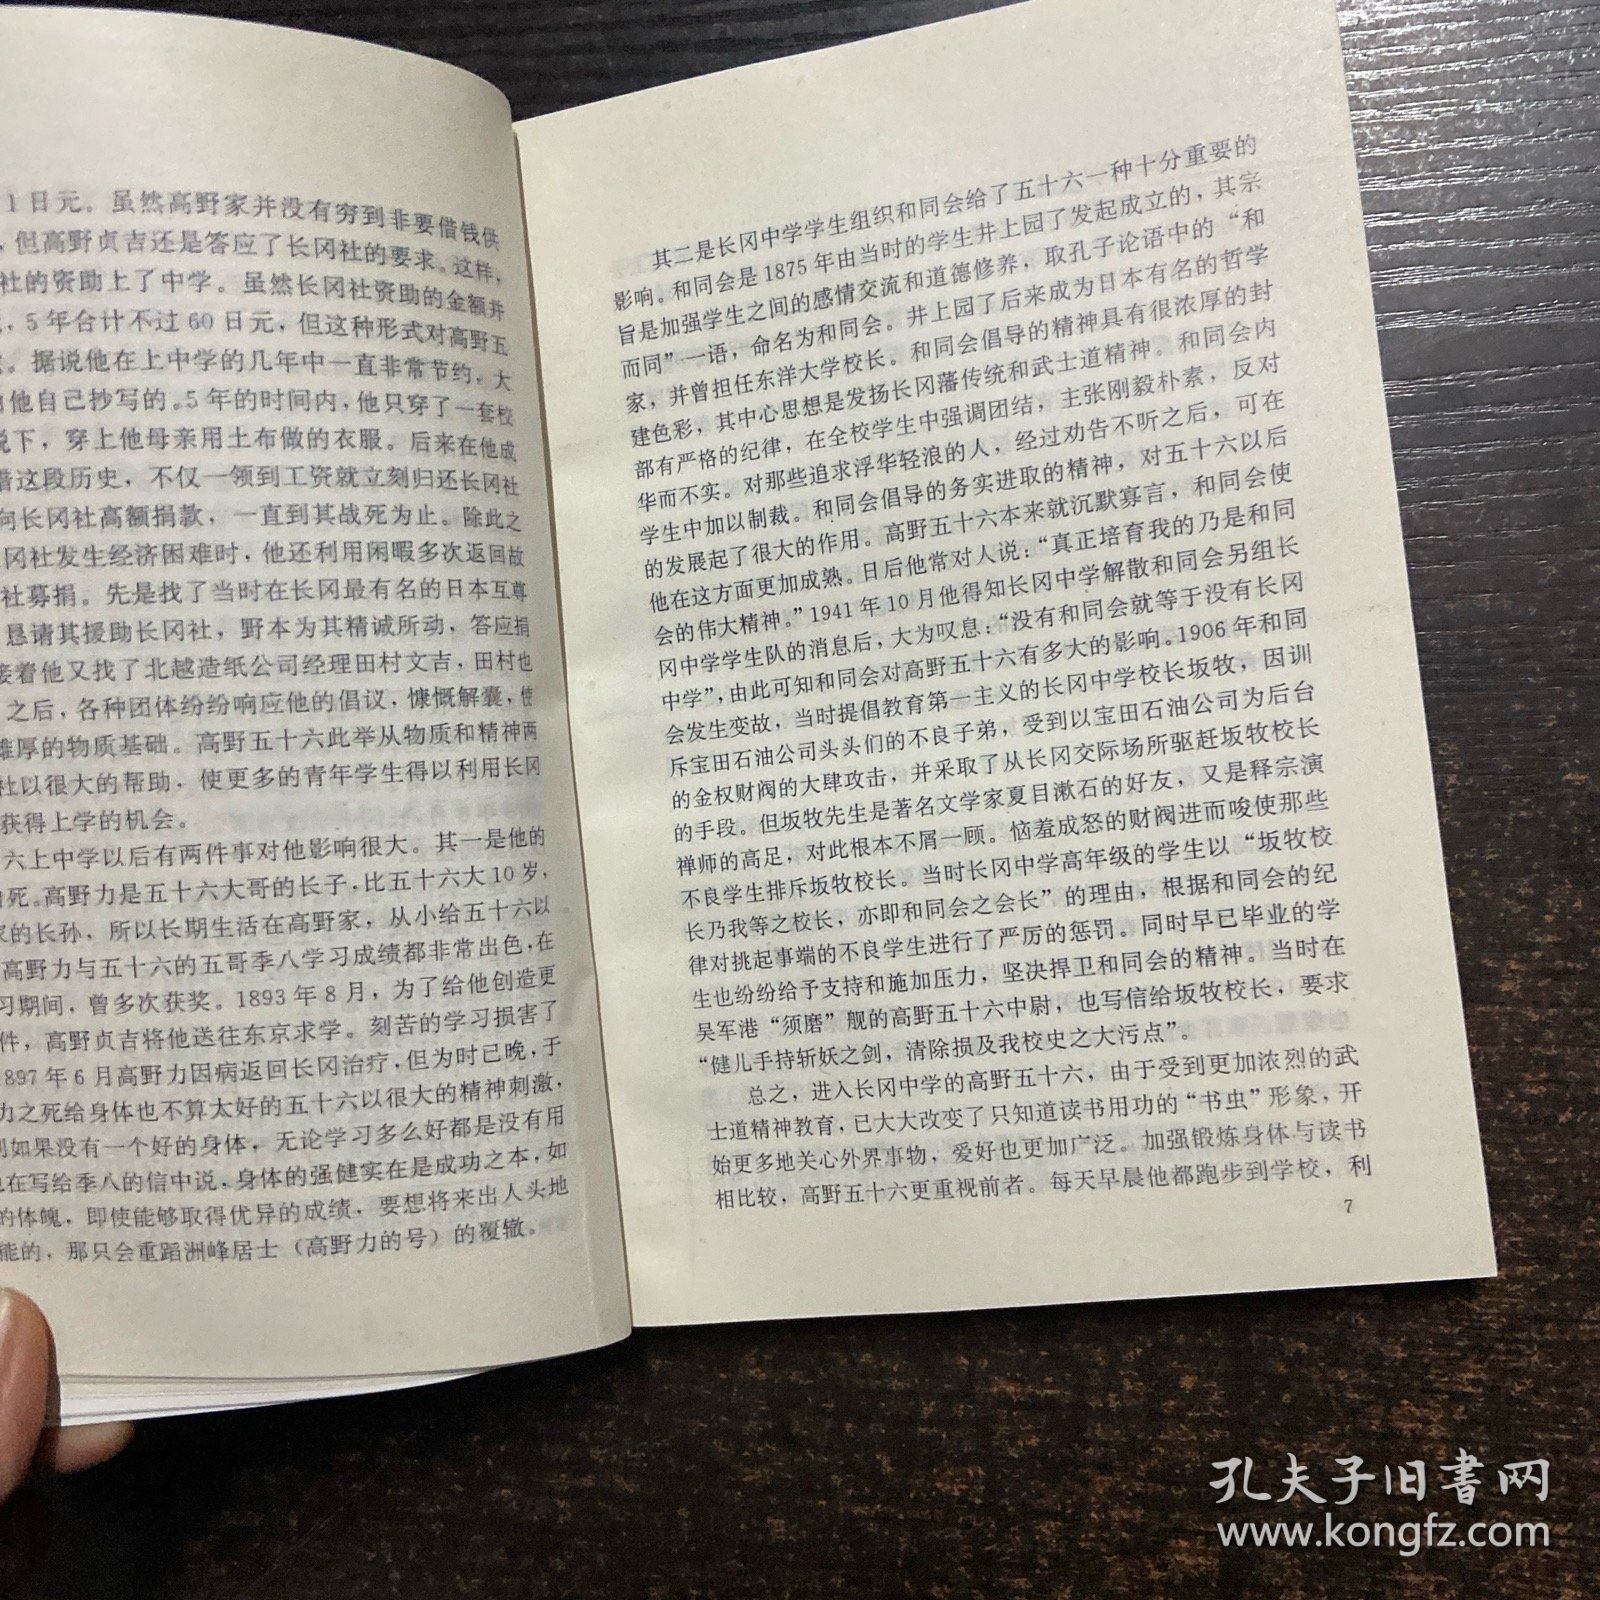 1日元。虽然高野家并没有穷到非要借钱供
，但高野贞吉还是答应了长冈社的要求。这样，
社的资助上了中学。虽然长冈社资助的金额并
，5年合计不过60日元，但这种形式对高野五
。据说他在上中学的几年中一直非常节约，大
他自己抄写的。5年的时间内，他只穿了一套校
脱下，穿上他母亲用土布做的衣服。后来在他成
惜这段历史，不仅一领到工资就立刻归还长冈社
向长冈社高额捐款，一直到其战死为止。除此之
冈社发生经济困难时，他还利用闲暇多次返回故
社募捐。先是找了当时在长冈最有名的日本互尊
恳请其援助长冈社，野本为其精诚所动，答应捐
接着他又找了北越造纸公司经理田村文吉，田村也
之后，各种团体纷纷响应他的倡议，慷慨解囊，使
雄厚的物质基础。高野五十六此举从物质和精神两
社以很大的帮助，使更多的青年学生得以利用长冈
获得上学的机会。
六上中学以后有两件事对他影响很大。其一是他的
死。高野力是五十六大哥的长子，比五十六大10岁，
家的长孙，所以长期生活在高野家，从小给五十六以
高野力与五十六的五哥季八学习成绩都非常出色，在
习期间，曾多次获奖。1893年8月，为了给他创造更
件，高野贞吉将他送往东京求学。刻苦的学习损害了
897年6月高野力因病返回长冈治疗，但为时已晚，于
力之死给身体也不算太好的五十六以很大的精神刺激，
到如果没有一个好的身体，无论学习多么好都是没有用
也在写给季八的信中说，身体的强健实在是成功之本，如
的体魄，即使能够取得优异的成绩，要想将来出人头地
能的，那只会重蹈洲峰居士（高野力的号）的覆辙。
其二是长冈中学学生组织和同会给了五十六一种十分重要的
影响。和同会是1875年由当时的学生井上园了发起成立的，其宗
旨是加强学生之间的感情交流和道德修养，取孔子论语中的“和
而同”一语，命名为和同会。井上园了后来成为日本有名的哲学
家，并曾担任东洋大学校长。和同会倡导的精神具有很浓厚的封
建色彩，其中心思想是发扬长冈藩传统和武士道精神。和同会内
部有严格的纪律，在全校学生中强调团结，主张刚毅朴素，反对
华而不实。对那些追求浮华轻浪的人，经过劝告不听之后，可在
学生中加以制裁。和同会倡导的务实进取的精神，对五十六以后
的发展起了很大的作用。高野五十六本来就沉默寡言，和同会使
他在这方面更加成熟。日后他常对人说：“真正培育我的乃是和同
会的伟大精神。”1941年10月他得知长冈中学解散和同会另组长
冈中学学生队的消息后，大为叹息：“没有和同会就等于没有长冈
中学”，由此可知和同会对高野五十六有多大的影响。1906年和同
会发生变故，当时提倡教育第一主义的长冈中学校长坂牧，因训
斥宝田石油公司头头们的不良子弟，受到以宝田石油公司为后台
的金权财阀的大肆攻击，并采取了从长冈交际场所驱赶坂牧校长
的手段。但坂牧先生是著名文学家夏目漱石的好友，又是释宗演
禅师的高足，对此根本不屑一顾。恼羞成怒的财阀进而唆使那些
不良学生排斥坂牧校长。当时长冈中学高年级的学生以“坂牧校
长乃我等之校长，亦即和同会之会长”的理由，根据和同会的纪
律对挑起事端的不良学生进行了严厉的惩罚。同时早已毕业的学
生也纷纷给予支持和施加压力，坚决捍卫和同会的精神。当时在
吴军港“须磨”舰的高野五十六中尉，也写信给坂牧校长，要求
“健儿手持斩妖之剑，清除损及我校史之大污点”。
总之，进入长冈中学的高野五十六，由于受到更加浓烈的武
士道精神教育，已大大改变了只知道读书用功的“书虫”形象，开
始更多地关心外界事物，爱好也更加广泛。加强锻炼身体与读书
相比较，高野五十六更重视前者。每天早晨他都跑步到学校，利
7
孔夫子旧书网
www.kongfz.com